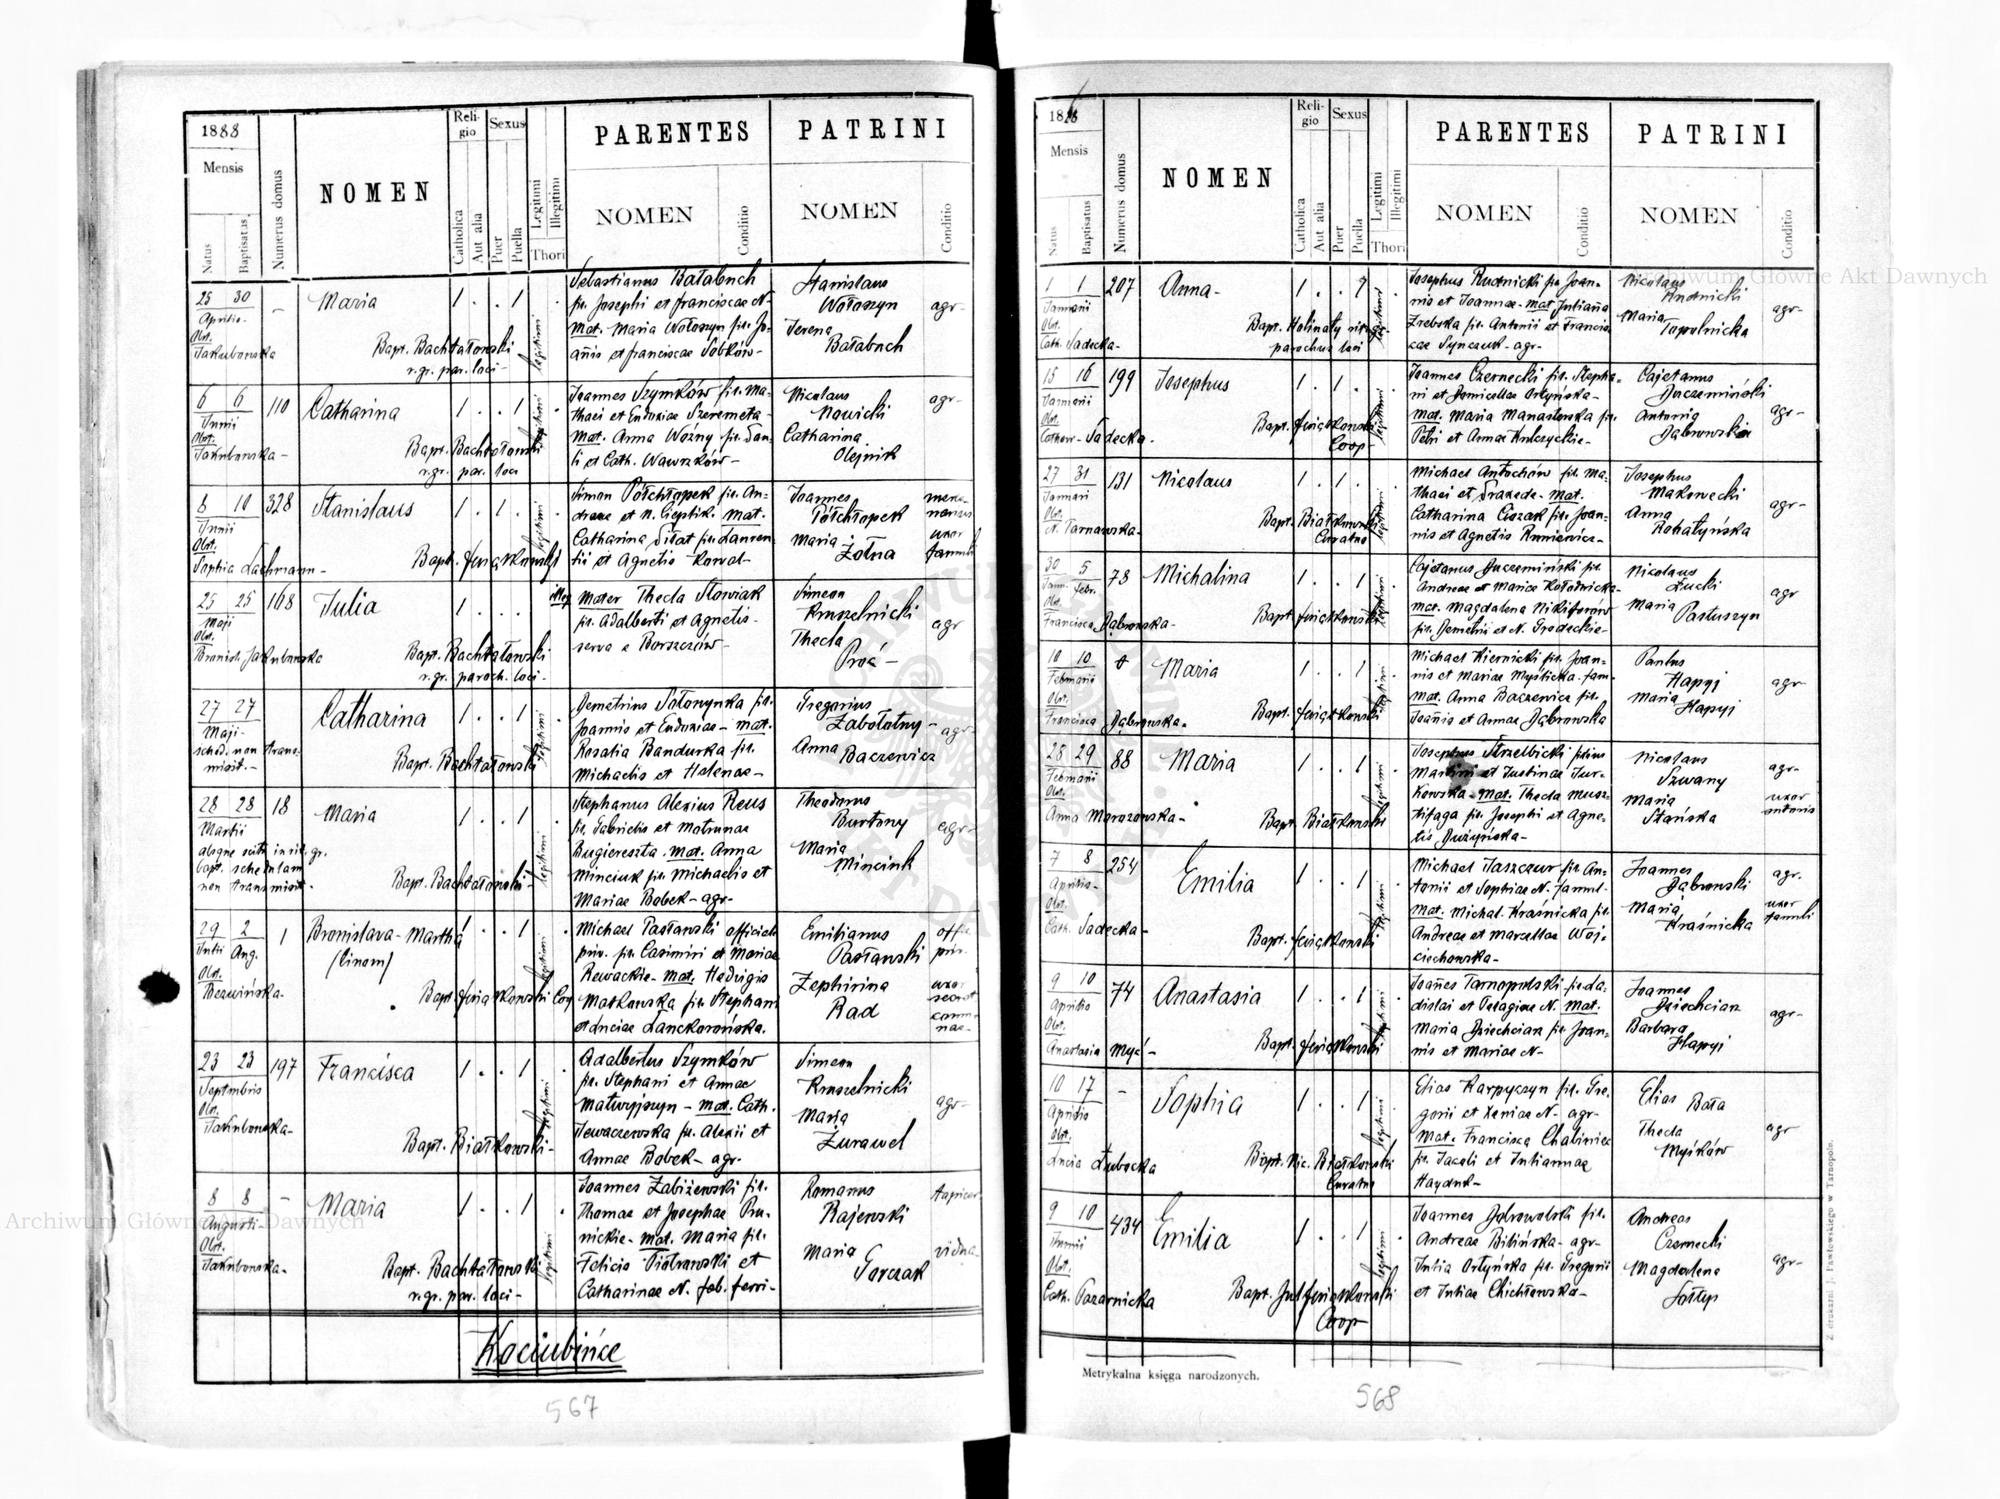 1888
Mensis
Natus
Baptisatus
Numerus domus
NOMEN
Religio
Catholica
Aut alia
Sexus
Puer
Puella
Legitimi
Illegitimi
Thori
PARENTES
NOMEN
Conditio
PATRINI
NOMEN
Conditio
25 30
Aprilis
Obst.
Jakubowska
Maria
1 . . 1
Bapt. Bachtałowski
r. gr. par. loci -
legitimi
Sebastianus Bałabuch
fil. Josephi et Franciscae N-
mat. Maria Wołoszyn fil. Jo-
annis et Franciscae Sobków-
Stanislaus
Wołoszyn
Bałabuch
agr-
6 6
Junii
Obst.
Jakubowska-
110
Catharina
1 . . 1
Bapt. Bachtałowski
r. gr. par. loci
Joannes Szymków fil. Ma-
thaei et Eudoxiae Szeremeta-
mat. Anna Woźny fil. Dan-
li et Cath. Wawrzków-
Nicolaus
Nowicki
Catharina
Olejnik
agr-
8 10
Junii
Obst.
Sophia Lachmann-
328
Stanislaus
1 . 1 .
legitimi
Simon Półchłopek fil. An-
dreae et N. Cieplik. mat.
Catharina Siłat fil. Lauren-
tii et Agnetis Kowal-
Joannes
Półchłopek
Maria
Żołna
uxor
famuli
25 25
Maji
Obst.
Bronisl. Jakubowska
168
Julia
1 . . .
illeg
Bapt. Bachtałowski
r. gr. paroch. loci-
Mater Thecla Słowiak
fil. Adalberti et Agnetis-
serva e Borszczów-
Simeon
Kruszelnicki
Thecla
Proć-
agr
27 27
Maji-
sched. non trans-
misit.-
Catharina
1 . . 1
Bapt. Bachtałowski
Demetrius Sołonynka fil.
Joannis et Eudoxiae- mat.
Rosalia Bandurka fil.
Michaelis et Helenae-
Gregorius
Zabołotny-
Anna Baczewicz
agr-
28 28
Martii
absque scitu in rit. gr.
bapt. schedulam
non transmisit.
18
Maria
1 . . 1
Bapt. Bachtałowski-
legitimi
Stephanus Alexius Reus
fil. Gabrielis et Matronae
Bugiereszta. mat. Anna
Minciuk fil. Michaelis et
Mariae Bobek- agr-
Theodorus
Burtony
Maria
Minciuk
agr-
29 2
Julii Aug.
Obst.
Berwińska-
1
Bronislava-Martha
(binom)
1 . . 1
legitimi
Michael Pasławski official.
priv. fil. Casimiri et Mariae
Rewackie- mat. Hedvigis
Małkowska fil. Stephani
et Luciae Lanckorońska.
Emilianus
Pasławski
Zephirina
Rad
offic.
priv.
uxor
secret
commu-
nae-
23 23
Septmbris
Obst.
Jakubowska-
197
Francisca
1 . . 1
Bapt. Białkowski-
legitimi
Adalbertus Szymków
fil. Stephani et Annae
Matwyjszyn- mat. Cath.
Lewaczewska fil. Alexii et
Annae Bobek- agr-
Simeon
Kruszelnicki
Maria
Żurawel
agr-
8 8
Augusti-
Obst.
Jakubowska-
-
Maria
1 . . 1
Bapt. Bachtałowski
r. gr. par. loci-
legitimi
Joannes Zabiżewski fil.
Thomae et Josephae Pru-
nickie- mat. Maria fil.
Felicis Piotrowski et
Catharinae N. fab. ferri-
Romanus
Rajewski
Maria
Gorczak
vidua-
Kociubińce
567
18
Mensis
Natus
Baptisatus
Numerus domus
NOMEN
Religio
Catholica
Aut alia
Sexus
Puer
Puella
Legitimi
Illegitimi
Thori
PARENTES
NOMEN
Conditio
PATRINI
NOMEN
Conditio
1 1
Januarii
Obst.
Cath. Sadecka-
207
Anna-
1 . . 1
Bapt. Holinaty
parochus loci
Josephus Rudnicki fil. Joan-
nis et Joannae- mat. Juliana
Zrebska fil. Antonii et Francis-
cae Synczuk- agr-
Nicolaus
Rudnicki
Maria
Topolnicka
agr-
15 16
Januarii
Obst.
Cathar. Sadecka.
199
Josephus
1 . 1 .
Coop-
Joannes Czernecki fil. Stepha-
ni et Domicellae Ortyńska-
mat. Maria Manasterska fil.
Petri et Annae Kulczyckie-
Cajetanus
Juczemiński
Antonia
Dąbrowska
agr-
27 31
Januarii
Obst.
N. Tarnawska-
131
Nicolaus
1 . 1 .
Bapt. Białkowski
Curatus
Michael Antochów fil. Ma-
thaei et Praxede- mat.
Catharina Ciszak fil. Joan-
nis et Agnetis Runiewicz-
Josephus
Makowecki
Anna
Rohatyńska
agr-
30 5
Janu. Febr.
Obst.
Francisca Dąbrowska-
78
Michalina
1 . . 1
Cajetanus Juczemiński fil.
Andreae et Mariae Kołodnicka-
mat. Magdalena Nikiforów
fil. Demetrii et N. Grodeckie-
Nicolaus
Łucki
Maria
Pastuszyn
agr
10 10
Februarii
Obst.
Francisca Dąbrowska-
Maria
1 . . 1
Michael Kiernicki fil. Joan-
nis et Mariae Myślicka- fam-
mat. Anna Baczewicz fil.
Joannis et Annae Dąbrowska
Paulus
Hapyj
Maria
Hapyj
agr-
28 29
Februarii
Obst.
Anna Morozowska-
88
Maria
1 . . 1
Bapt. Białkowski
legitimi
Josephus Strzelbicki filius
Martini et Justinae Jur-
kowska- mat. Thecla Musz-
tifaga fil. Josephi et Agne-
tis Dużyńska-
Nicolaus
Szwany
Maria
Stańska
agr-
uxor
sutoris
7 8
Aprilis-
Obst.
Cath. Sadecka-
254
Emilia
1 . . 1
Michael Jaszczur fil. An-
tonii et Sophiae N. famul-
mat. Michal. Kraśnicka fil.
Andreae et Marcellae Woj-
ciechowska-
Joannes
Dąbrowski
Maria
Kraśnicka
agr.
uxor
famuli
9 10
Aprilis
Obst.
Anastasia Myć-
74
Anastasia
1 . . 1
Joannes Tarnopolski fil. La-
dislai et Pelagiae N. mat.
Maria Dziechciarz fil. Joan-
nis et Mariae N-
Joannes
Dziechciarz
Barbara
Hapyj
agr-
10 17
Aprilis
Obst.
Lucia Łubocka
-
Sophia
1 . . 1
Bapt. Nic. Białkowski
Curatus
legitimi
Elias Karpyczyn fil. Gre-
gorii et Xeniae N- agr-
mat. Francisca Chaliniez
fil. Jacobi et Juliannae
Hayduk-
Elias Bała
Thecla
Myśków
agr
9 10
Junii
Obst.
Cath. Pozarnicka
434
Emilia
1 . . 1
Coop-
legitimi
Joannes Dobrowolski fil.
Andreae Bilińska- agr-
Julia Ortyńska fil. Gregorii
et Juliae Chichłowska-
Andreas
Czernecki
Magdalena
Sołtys
agr-
Metrykalna księga narodzonych.
Z drukarni J. Pawłowskiego w Tarnopolu.
568
Archiwum Główne Akt Dawnych
Archiwum Główne Akt Dawnych